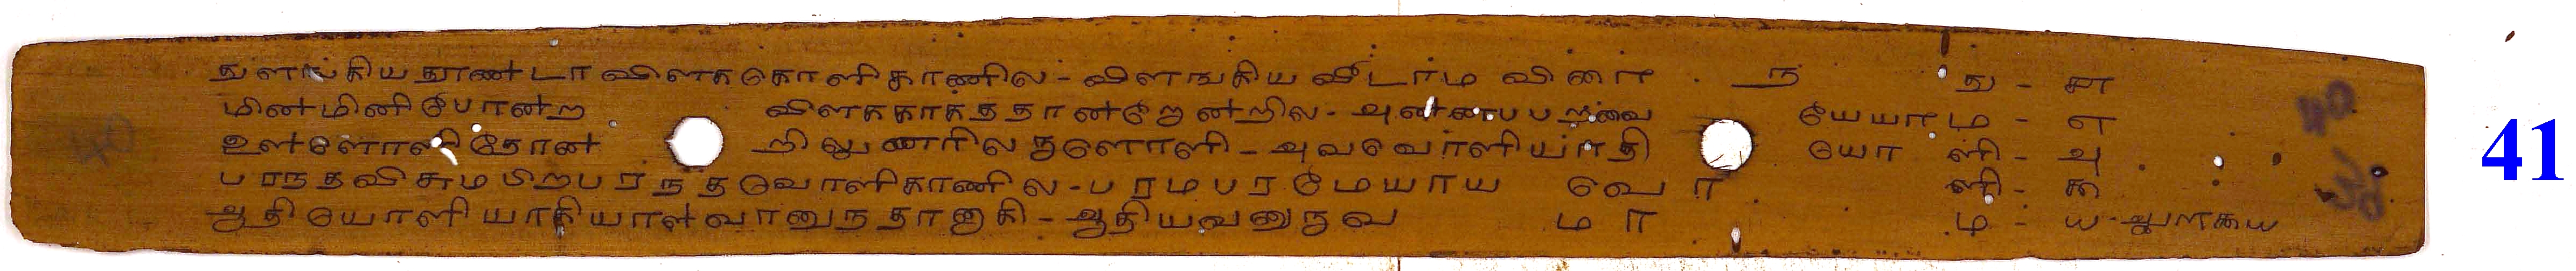 துளங்கிய தூண்டா விளககொளிகாணில - விளஙகிய வீடாம விரைந து - ௬
மின்மினி போன்ற விளககாகத தான்றோன்றில - அன்னபபறவை யேயாம - ௭
உள்ளொளி தோன்றிலுணரிலநதுளொளி - அவவொளியாதி யோ ளி - ௮
பரநத விசுமபிற பரநதவொளிகாணில - பரமபரமேயாய வொ ளி - ௯
ஆதியொளியாகியாள்வானுநதானாகி - ஆதியவனுருவ மா ம - ௰
41